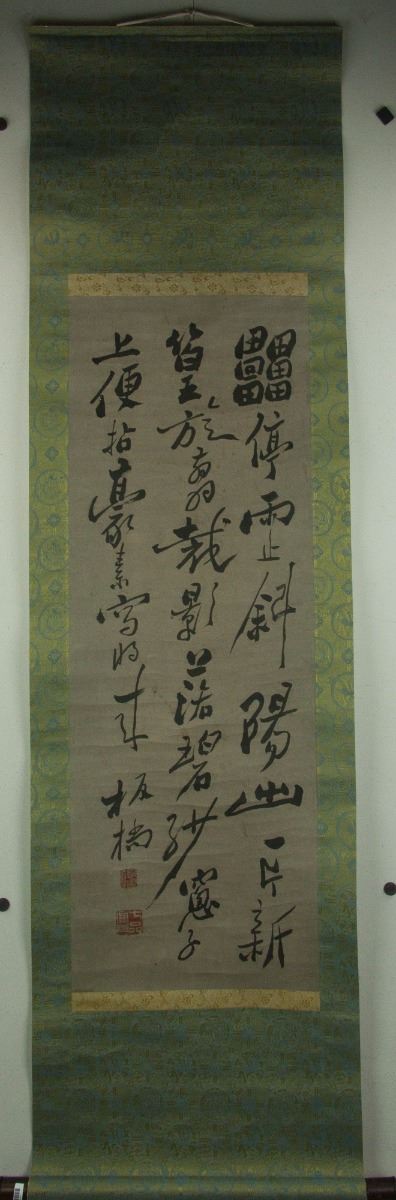 雷停雨止斜陽出一片新
篁旋翦裁影落碧紗窻子
上便拈豪素寫將來
板橋